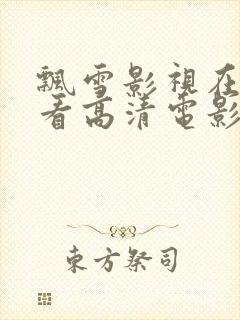 飄雪影視在
看高清電影
東方祭司